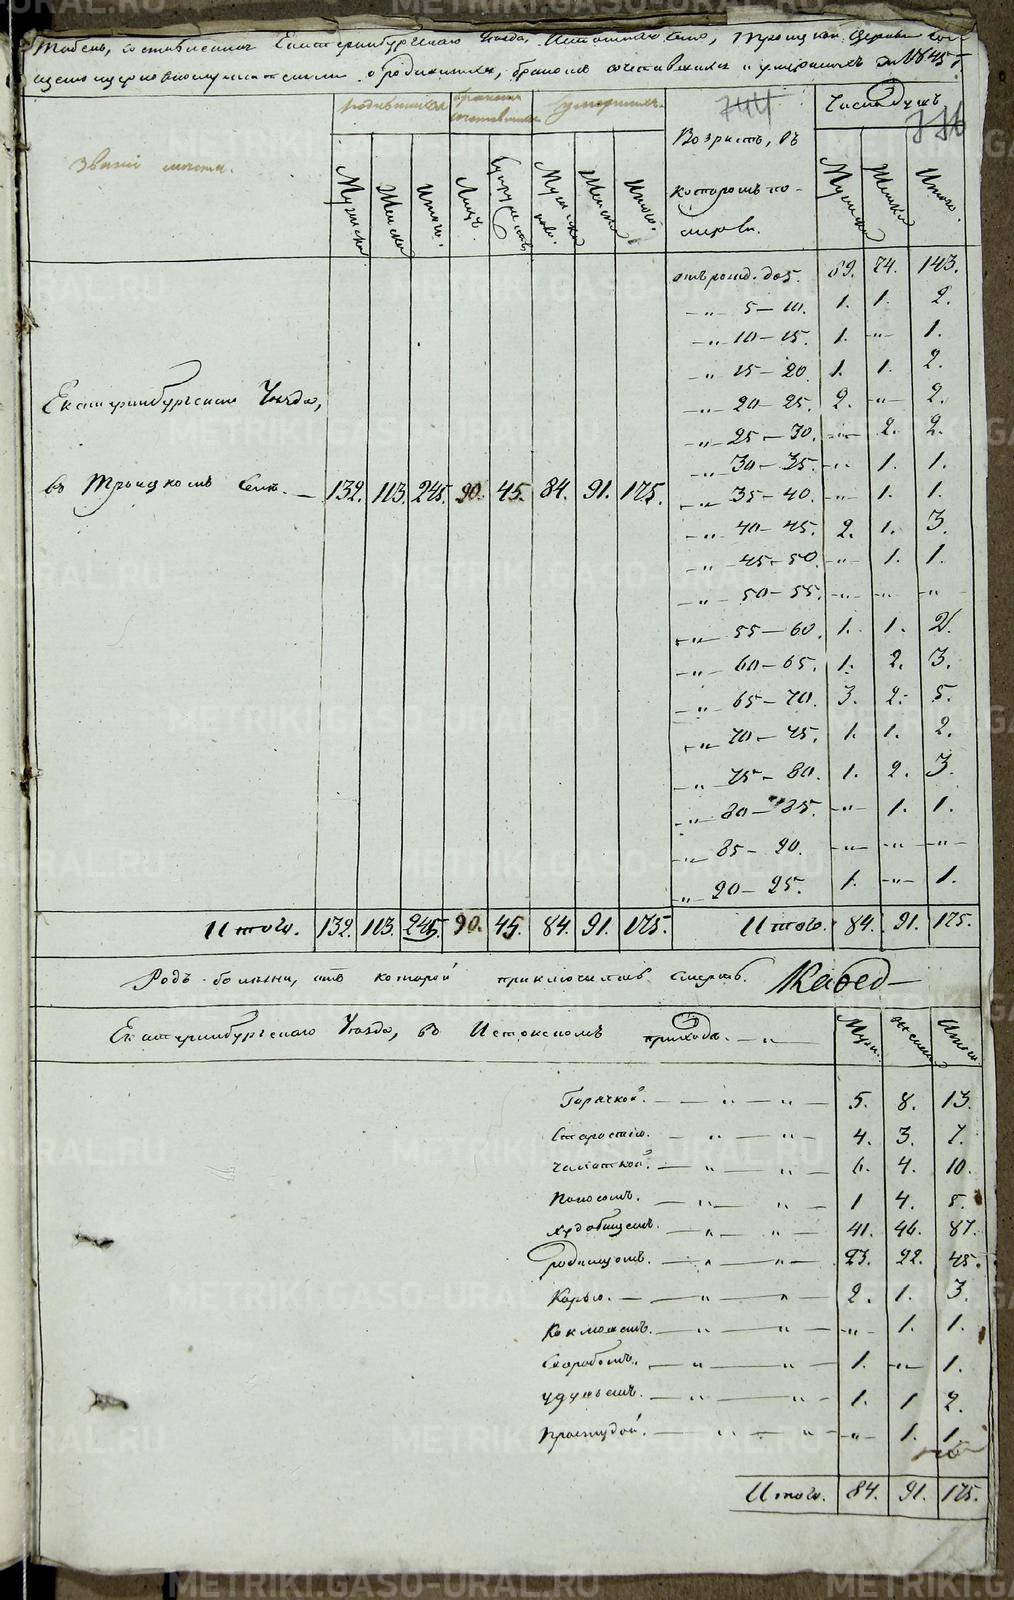 Табель, составленная Екатеринбургскаго Уезда, Истокскаго села, Троицкой Церкви
о родившихся, бракомъ сочетавшихся и умершихъ за 1845 г.
Званiе места.
родившихся
бракомъ сочетавшихся
умершихъ
744
Возрастъ, въ которомъ померли.
Число душъ
Мужеска Женска Итого. Лицъ. Супружествъ Мужеска Женска Итого. Мужеска Женска Итого.
отъ рожд. до 5. 69. 74. 143.
-„- 5-10. 1. 1. 2.
-„- 10-15. 1. -„- 1.
-„- 15-20. 1. 1. 2.
-„- 20-25. 2. -„- 2.
Екатеринбургскаго Уезда,
-„- 25-30. -„- 2. 2.
-„- 30-35. -„- 1. 1.
въ Троицкомъ селе. — 132. 113. 245. 90. 45. 84. 91. 175.
-„- 35-40. -„- 1. 1.
-„- 40-45. 2. 1. 3.
-„- 45-50. -„- 1. 1.
-„- 50-55. -„- -„- -„-
-„- 55-60. 1. 1. 2.
-„- 60-65. 1. 2. 3.
-„- 65-70. 3. 2. 5.
-„- 70-75. 1. 1. 2.
-„- 75-80. 1. 2. 3.
-„- 80-85. -„- 1. 1.
-„- 85-90. -„- -„- -„-
-„- 90-95. 1. -„- 1.
Итого. 132. 113. 245. 90. 45. 84. 91. 175. Итого. 84. 91. 175.
Родъ болезни, отъ которой приключилась смерть.
Екатеринбургскаго Уезда, въ Истокскомъ приходе. -„- Муж. Женск. Итого
Горячкой. -„- -„- 5. 8. 13.
Старостiю. -„- -„- 4. 3. 7.
Чахоткой. -„- -„- 6. 4. 10.
Поносомъ. -„- -„- 1 4. 5.
Худобищемъ. -„- -„- 41. 46. 87.
Родимцомъ. -„- -„- 23. 22. 45.
Корью. -„- -„- 2. 1. 3.
Коклюшемъ. -„- -„- -„- 1. 1.
-„- -„- 1. -„- 1.
Удушьемъ. -„- -„- 1. 1 2.
Простудой. -„- -„- -„- 1. 1.
Итого. 84. 91. 175.
METRIKI.GASO-URAL.RU